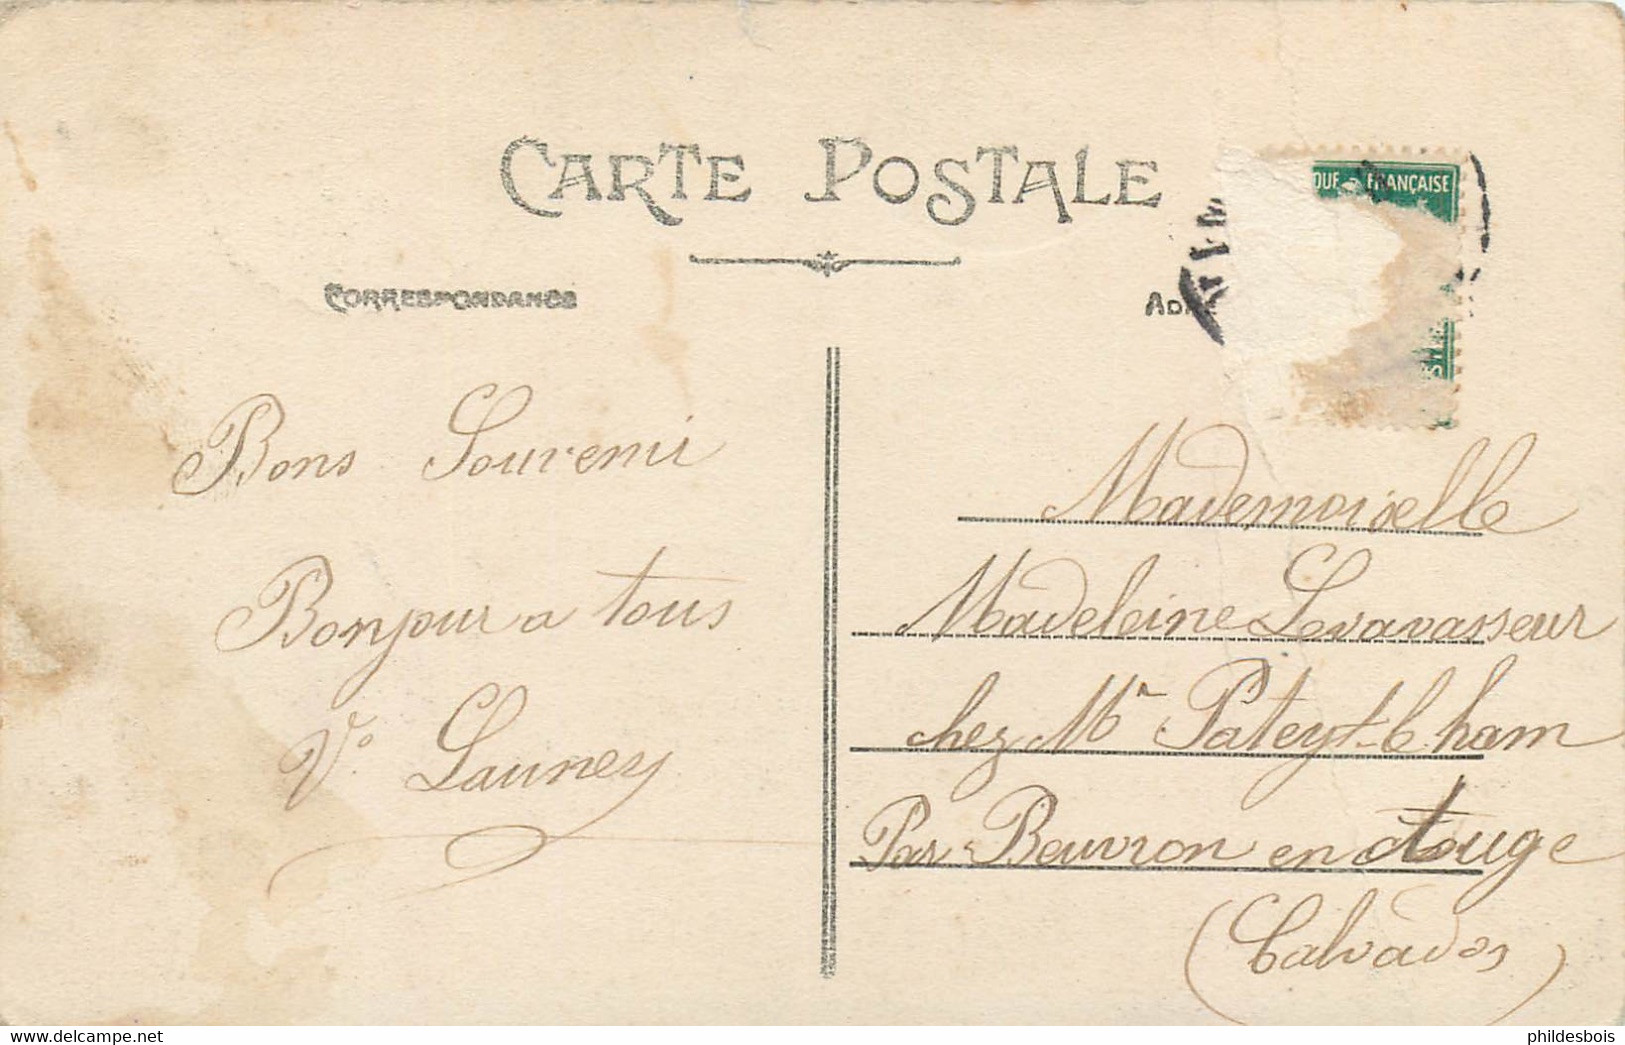 CARTE POSTALE
CORRESPONDANCE
FRANÇAISE
Bons Souvenir
Bonjour a tous
Vᵒ Launey
Mademoiselle
Madeleine Levavasseur
chez Mʳ Pateyt-Cham
Par Beuvron en Auge
(Calvados)
www.delcampe.net
phildesbois